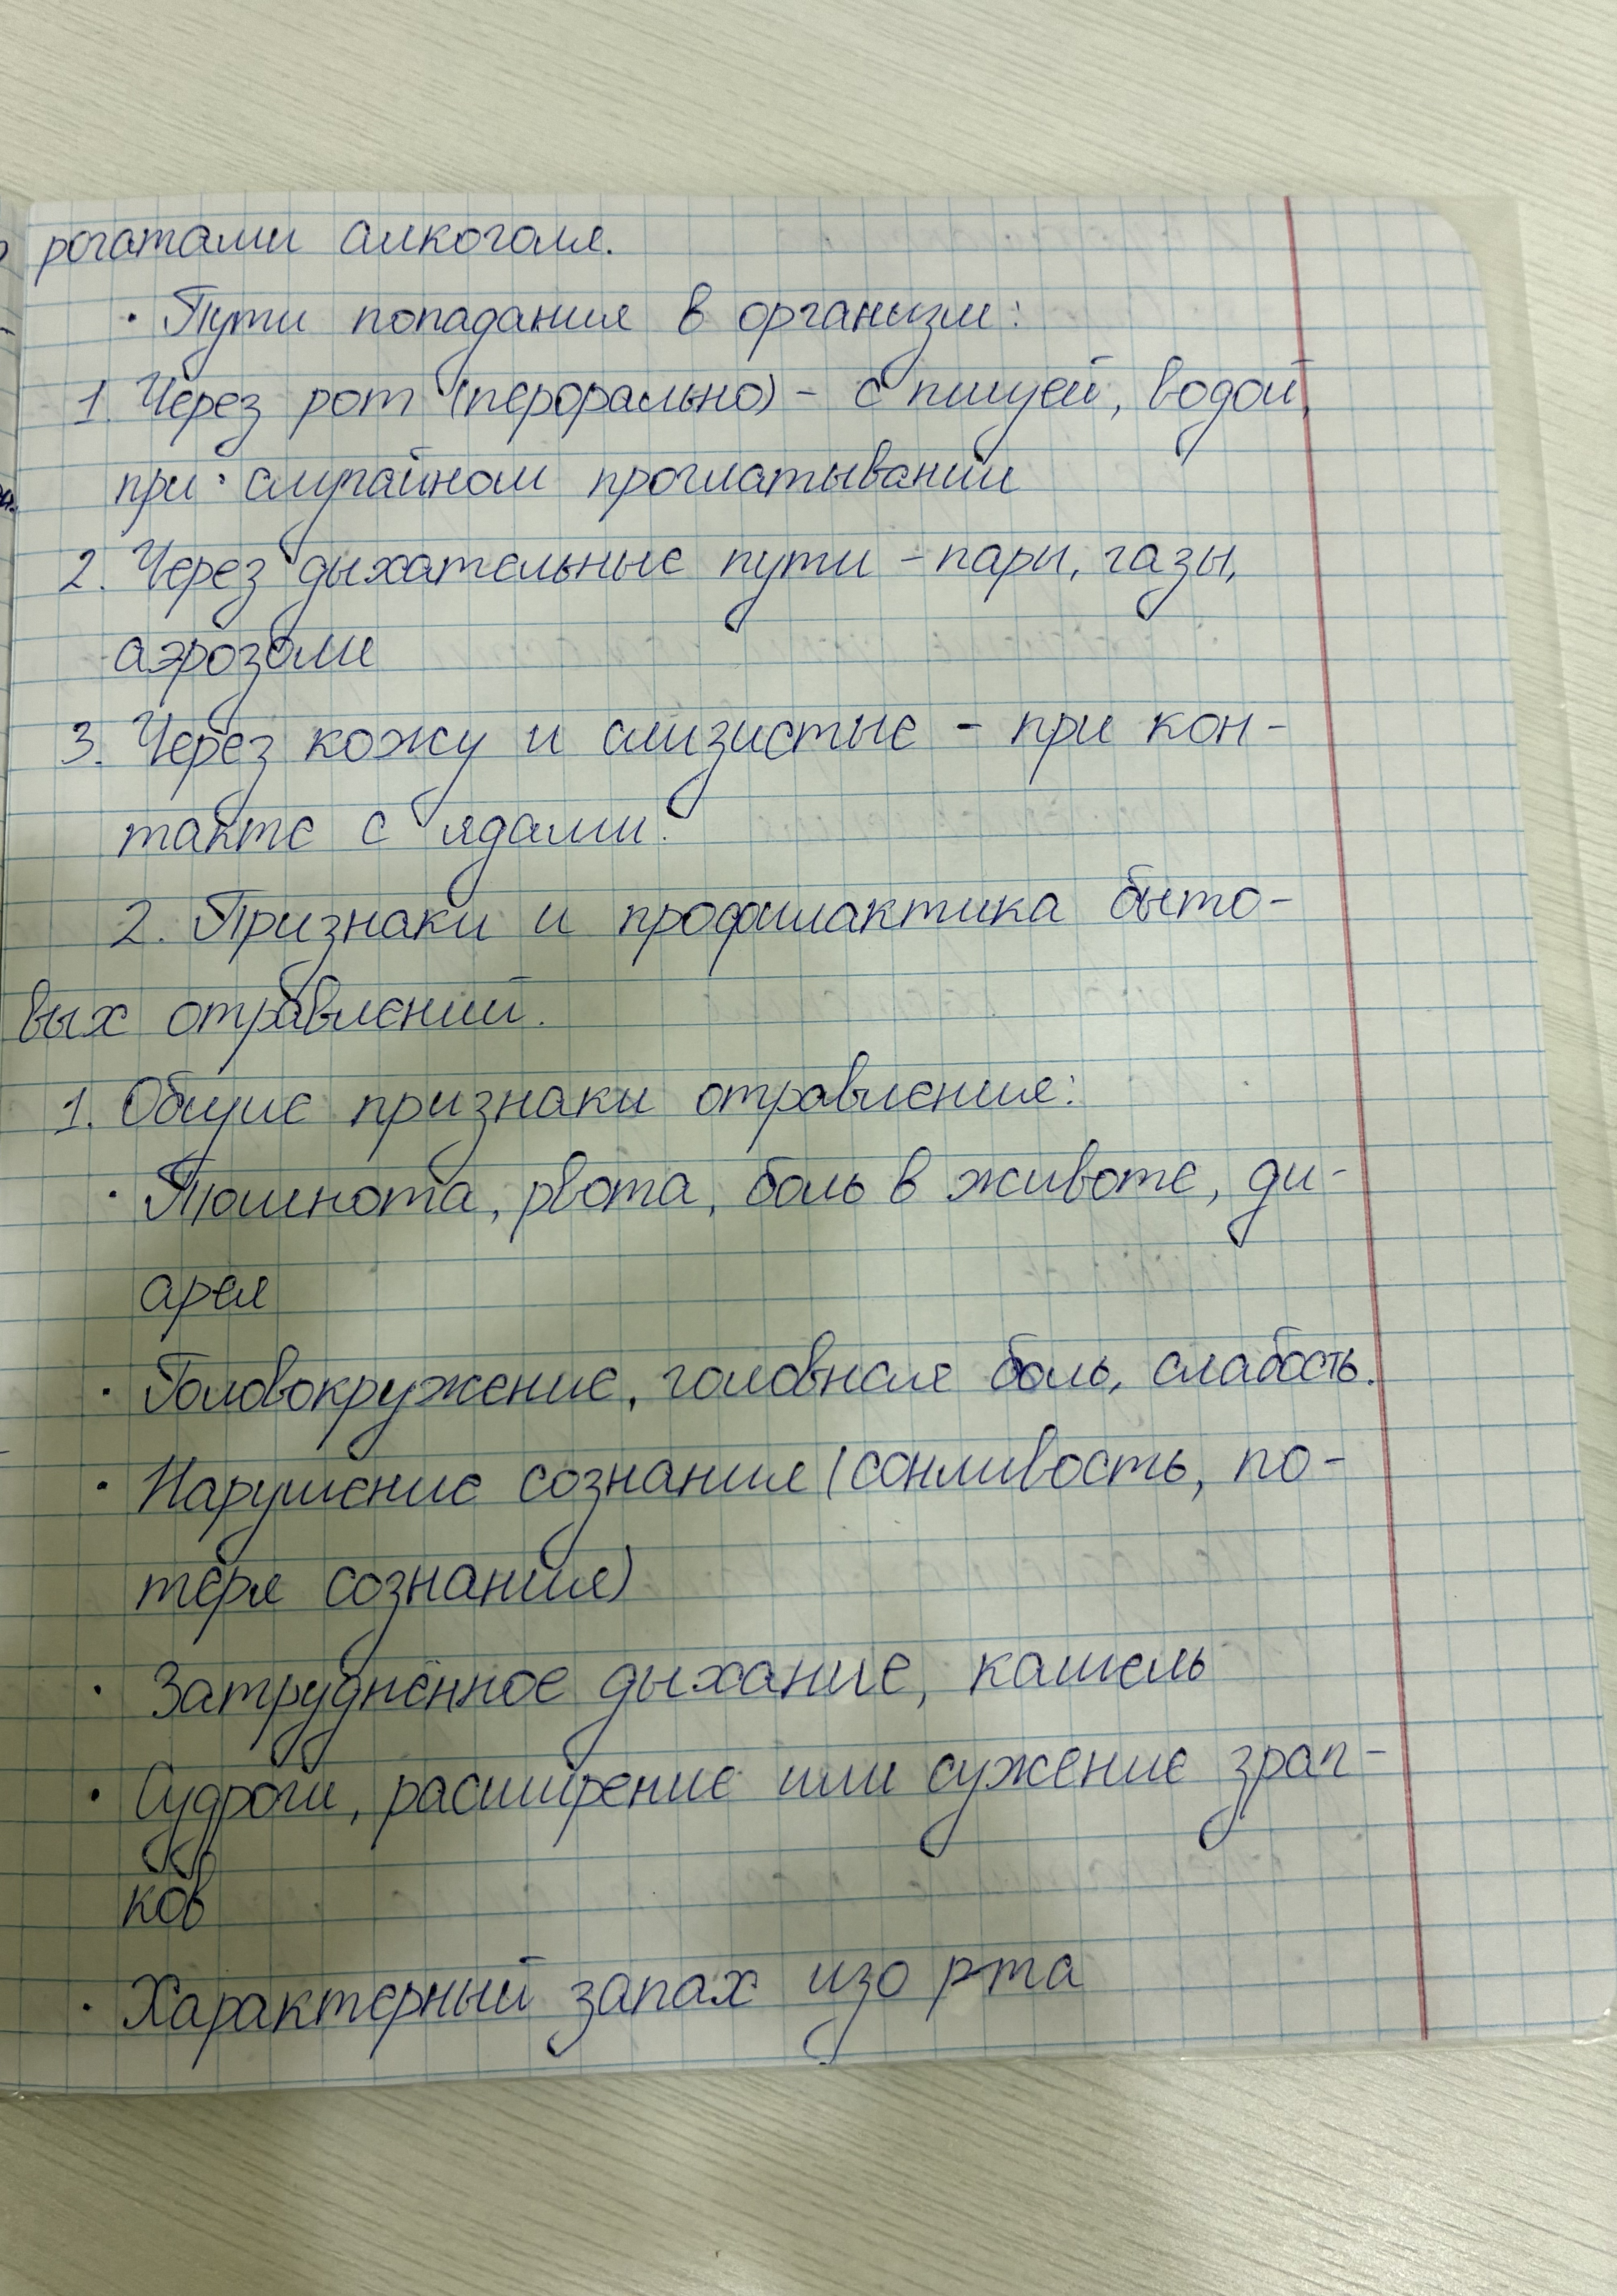 рогатами алкоголя.
· Пути попадания в организм:
1. Через рот (перорально) - с пищей, водой,
при случайном проглатывании
2. Через дыхательные пути - пары, газы,
аэрозоли
3. Через кожу и слизистые - при кон-
такте с ядами.
2. Признаки и профилактика быто-
вых отравлений.
1. Общие признаки отравления:
· Тошнота, рвота, боль в животе, ди-
арея
· Головокружение, головная боль, слабость.
· Нарушение сознания (сонливость, по-
теря сознания)
· Затруднённое дыхание, кашель
· Судроги, расширение или сужение зрач-
ков
· Характерный запах изо рта